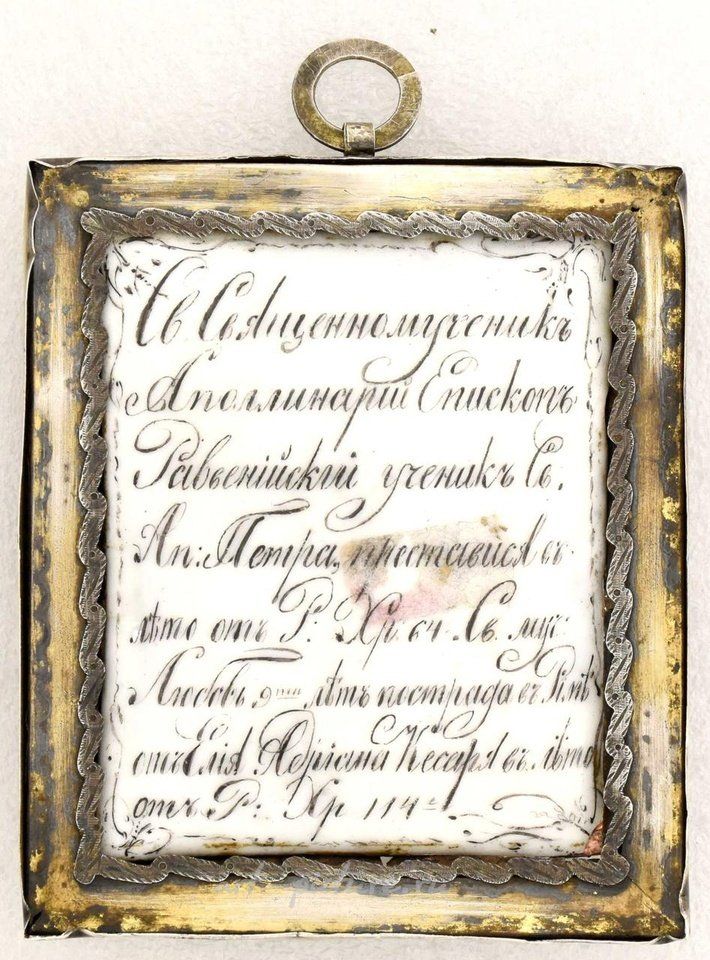 Св Священномученикъ
Аполлинарий Епископъ
Равеенійский ученикъ Св.
Ап: Петра, преставися въ
лѣто отъ Р: Хр. 64. Св. муч:
Любовь 9ти лѣтъ пострада въ Римѣ
отъ Елія Адріана Кесаря въ лѣто
отъ Р: Хр 114